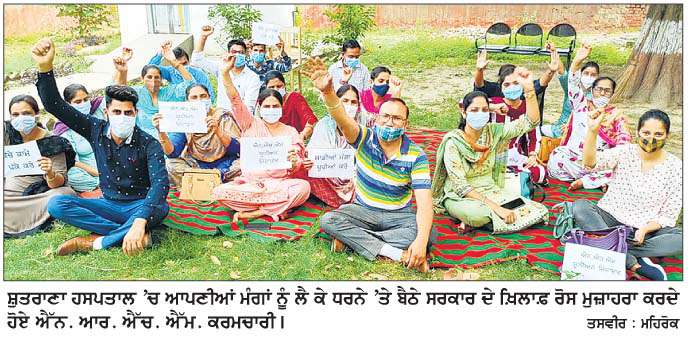 ਸ਼ੁਤਰਾਣਾ ਹਸਪਤਾਲ ’ਚ ਆਪਣੀਆਂ ਮੰਗਾਂ ਨੂੰ ਲੈ ਕੇ ਧਰਨੇ ’ਤੇ ਬੈਠੇ ਸਰਕਾਰ ਦੇ ਖ਼ਿਲਾਫ਼ ਰੋਸ ਮੁਜ਼ਾਹਰਾ ਕਰਦੇ
ਹੋਏ ਐੱਨ. ਆਰ. ਐੱਚ. ਐੱਮ. ਕਰਮਚਾਰੀ।
ਤਸਵੀਰ : ਮਹਿਰੋਕ